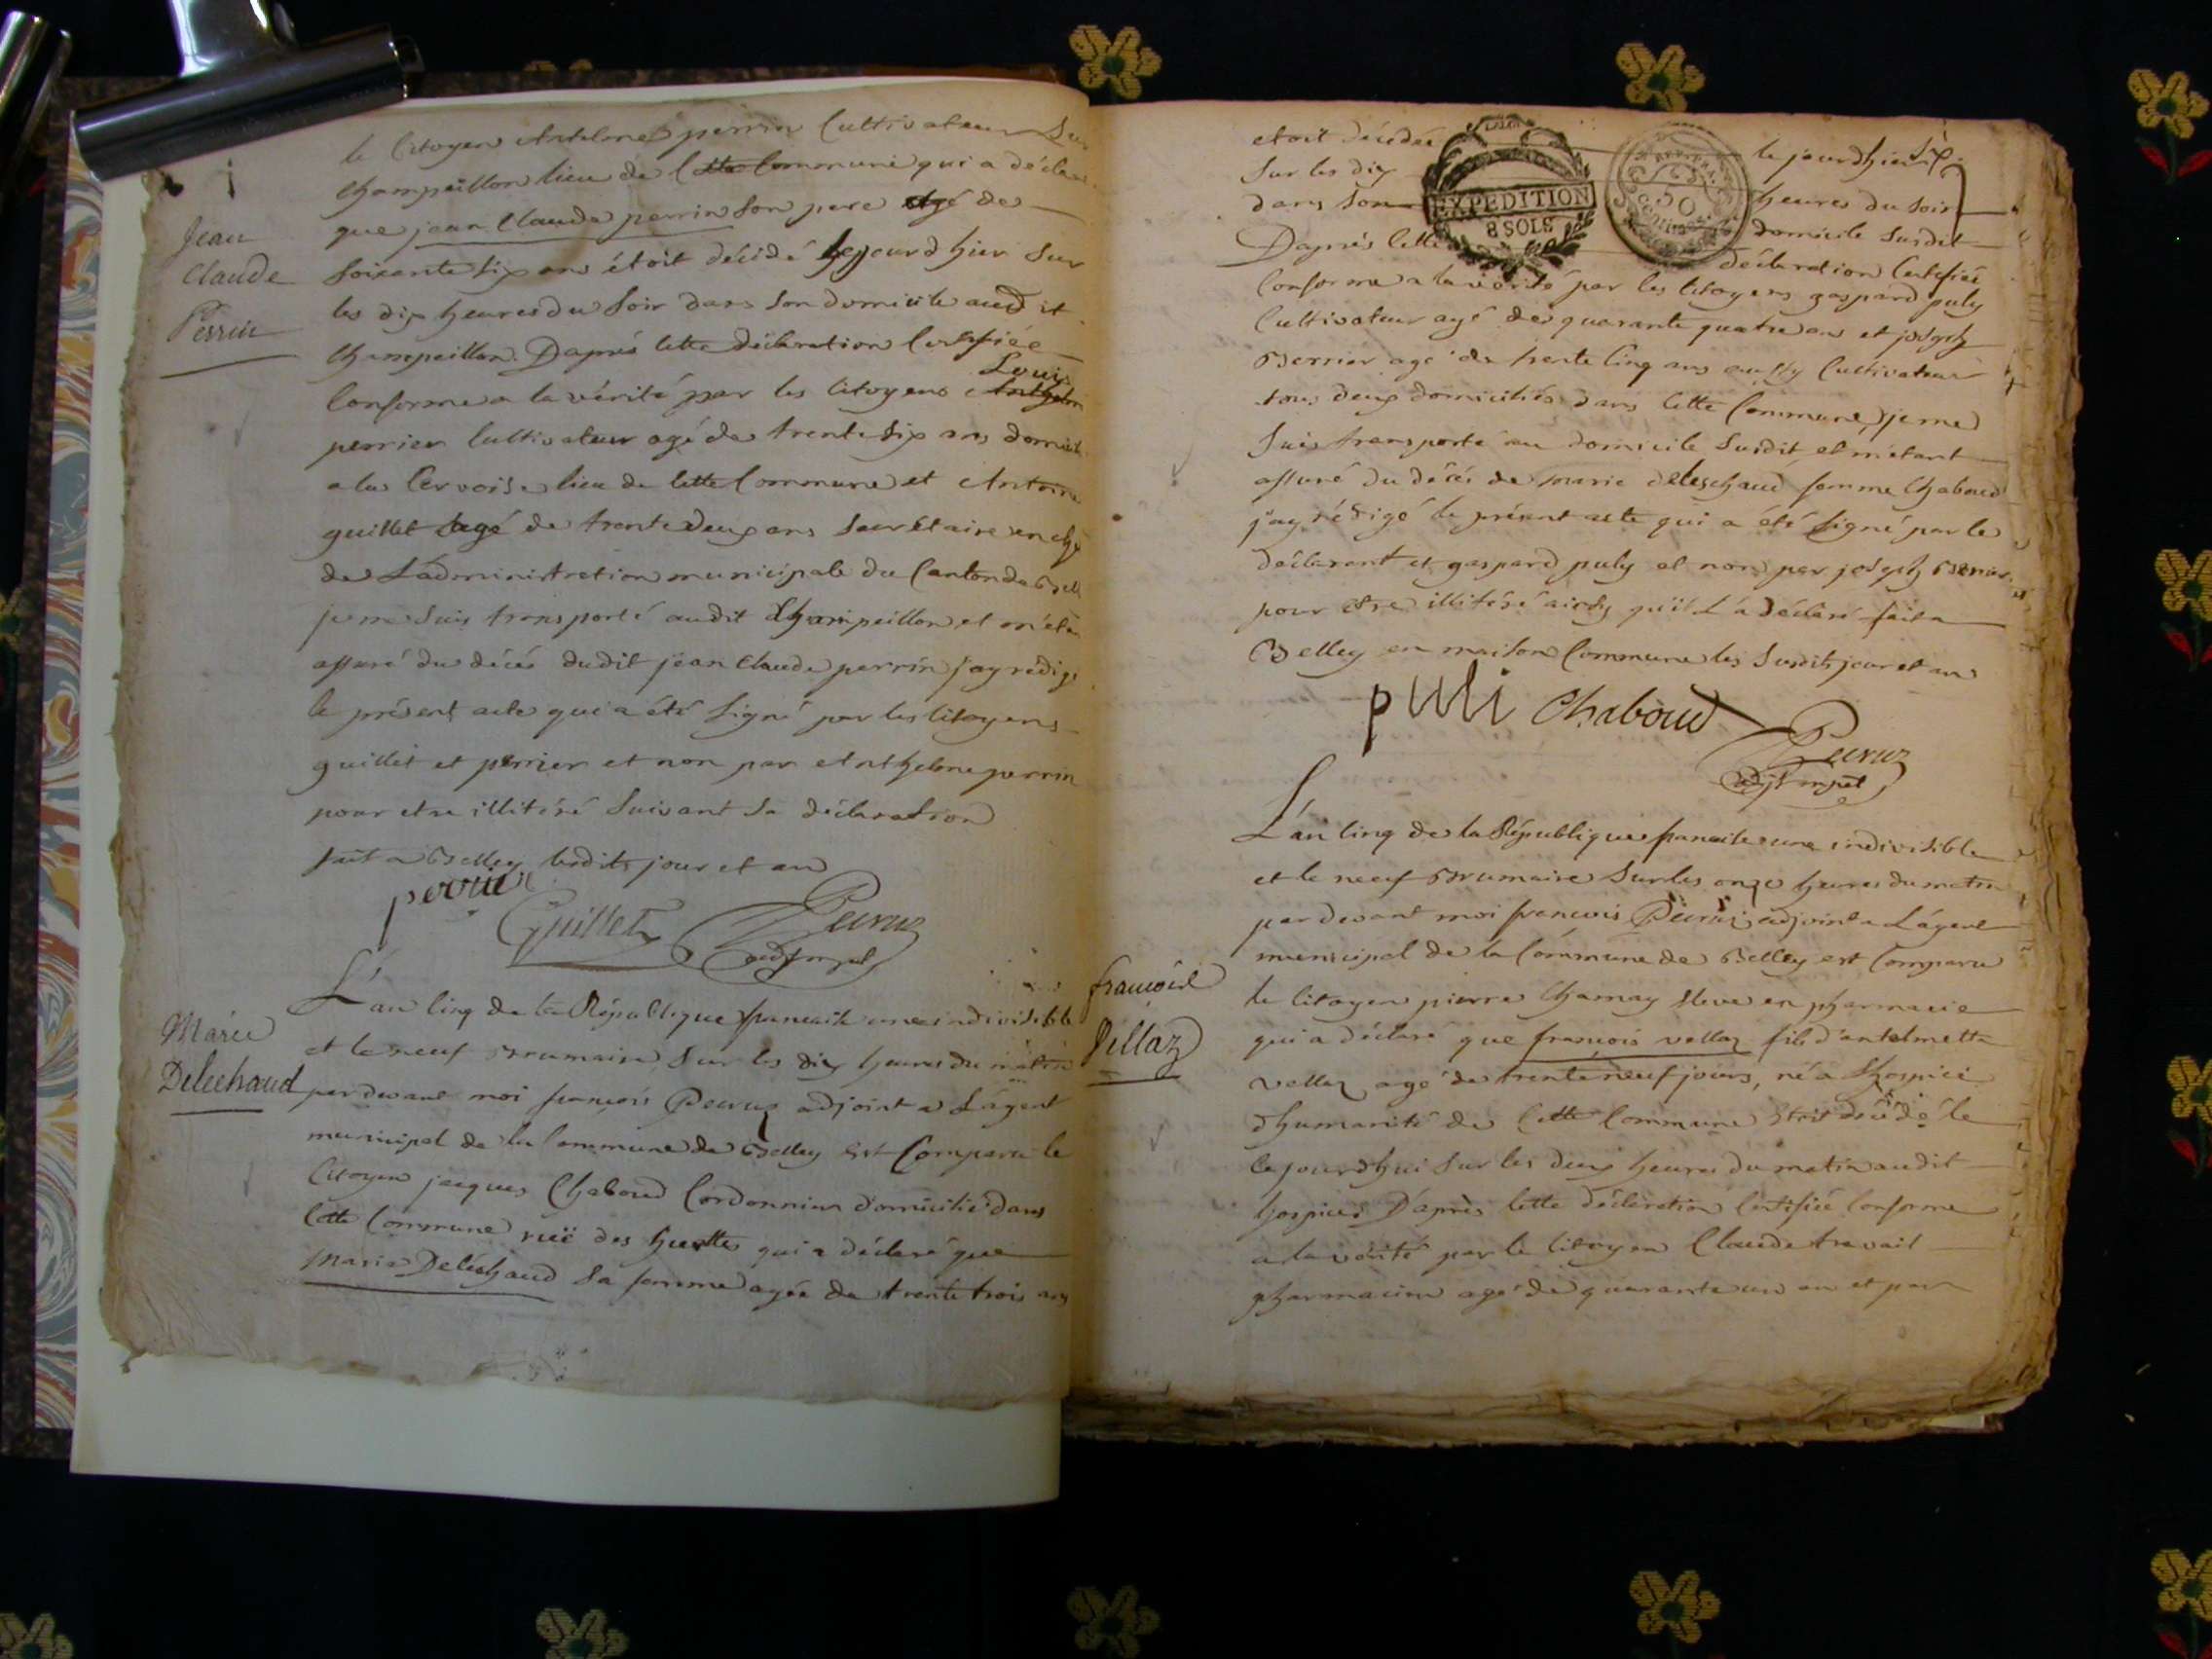 le Citoyen Antelme perrin Cultivateur
Champeillon lieu de Cette Commune qui a déclaré
Jean
Claude
Perrin
que jean Claude perrin son pere agé de
soixante six ans étoit décédé le jourd hier sur
les dix heures du soir dans son domicile audit
Champeillon. Daprès Cette déclaration Certifiée
Louis
Conforme a la vérité par les Citoyens Anthelme
perrier Cultivateur agé de trente six ans domicilié
a la Cervoise lieu de Cette Commune et Antoine
guillet agé de trente deux ans Secrétaire en chef
de L'administration municipale du Canton de Belley
je me suis transporté audit Champeillon et m'étant
assuré du décés dudit jean Claude perrin j'ay rédigé
le présent acte qui a été signé par les Citoyens
guillet et perrier et non par Anthelme perrin
pour etre illitéré suivant sa déclaration
fait a Belley lesdits jour et an
perrier
Guillet
Peeruz
adj mpal
Marie
Delechaud
L'an Cinq de la République francaise une indivisible
et le neuf Brumaire, sur les dix heures du matin
par devant moi françois Peeruz adjoint a Lagent
municipal de la Commune de Belley est Comparu le
Citoyen jacques Chaboud Cordonnier domicilié dans
Cette Commune rüe des huttes qui a déclaré que
Marie Deléchaud sa femme agée de trente trois ans
etoit décédée le jourdhier
Sur les dix heures du soir
dans son domicile susdit
EXPEDITION
8 SOLS
50
Centimes
Daprès Cette déclaration Certifiée
Conforme a la vérité par les Citoyens gaspard puly
Cultivateur agé de quarante quatre ans et joseph
Bernier agé de trente Cinq ans aussy Cultivateur
tous deux domiciliés dans Cette Commune, je me
suis transporté au domicile susdit et m'étant
assuré du décés de marie deleschaud femme Chaboud
j'ay rédigé le présent acte qui a été signé par le
déclarant et gaspard puly et non par joseph Bernier
pour etre illitéré ainsy qu'il L'a déclaré fait a
Belley en maison Commune les susdits jour et an
puli Chaboud
Peeruz
adjt mpal
L'an Cinq de la République francaise une indivisible
et le neuf Brumaire Sur les onze heures du matin
par devant moi francois Peeruz adjoint a Lágent
municipal de la Commune de Belley est Comparu
francois
Vellaz
le Citoyen pierre Chamay éleve en pharmacie
qui a déclaré que françois vellaz fils d'antelmette
vellaz agé de trente neuf jours, né a Lhospice
dhumanité de Cette Commune étoit décédé le
Ce jourdhui sur les deux heures du matin audit
hospice. D'après Cette déclaration Certifiée Conforme
a la vérité par le Citoyen Claude travail
pharmacien agé de quarante un an et par